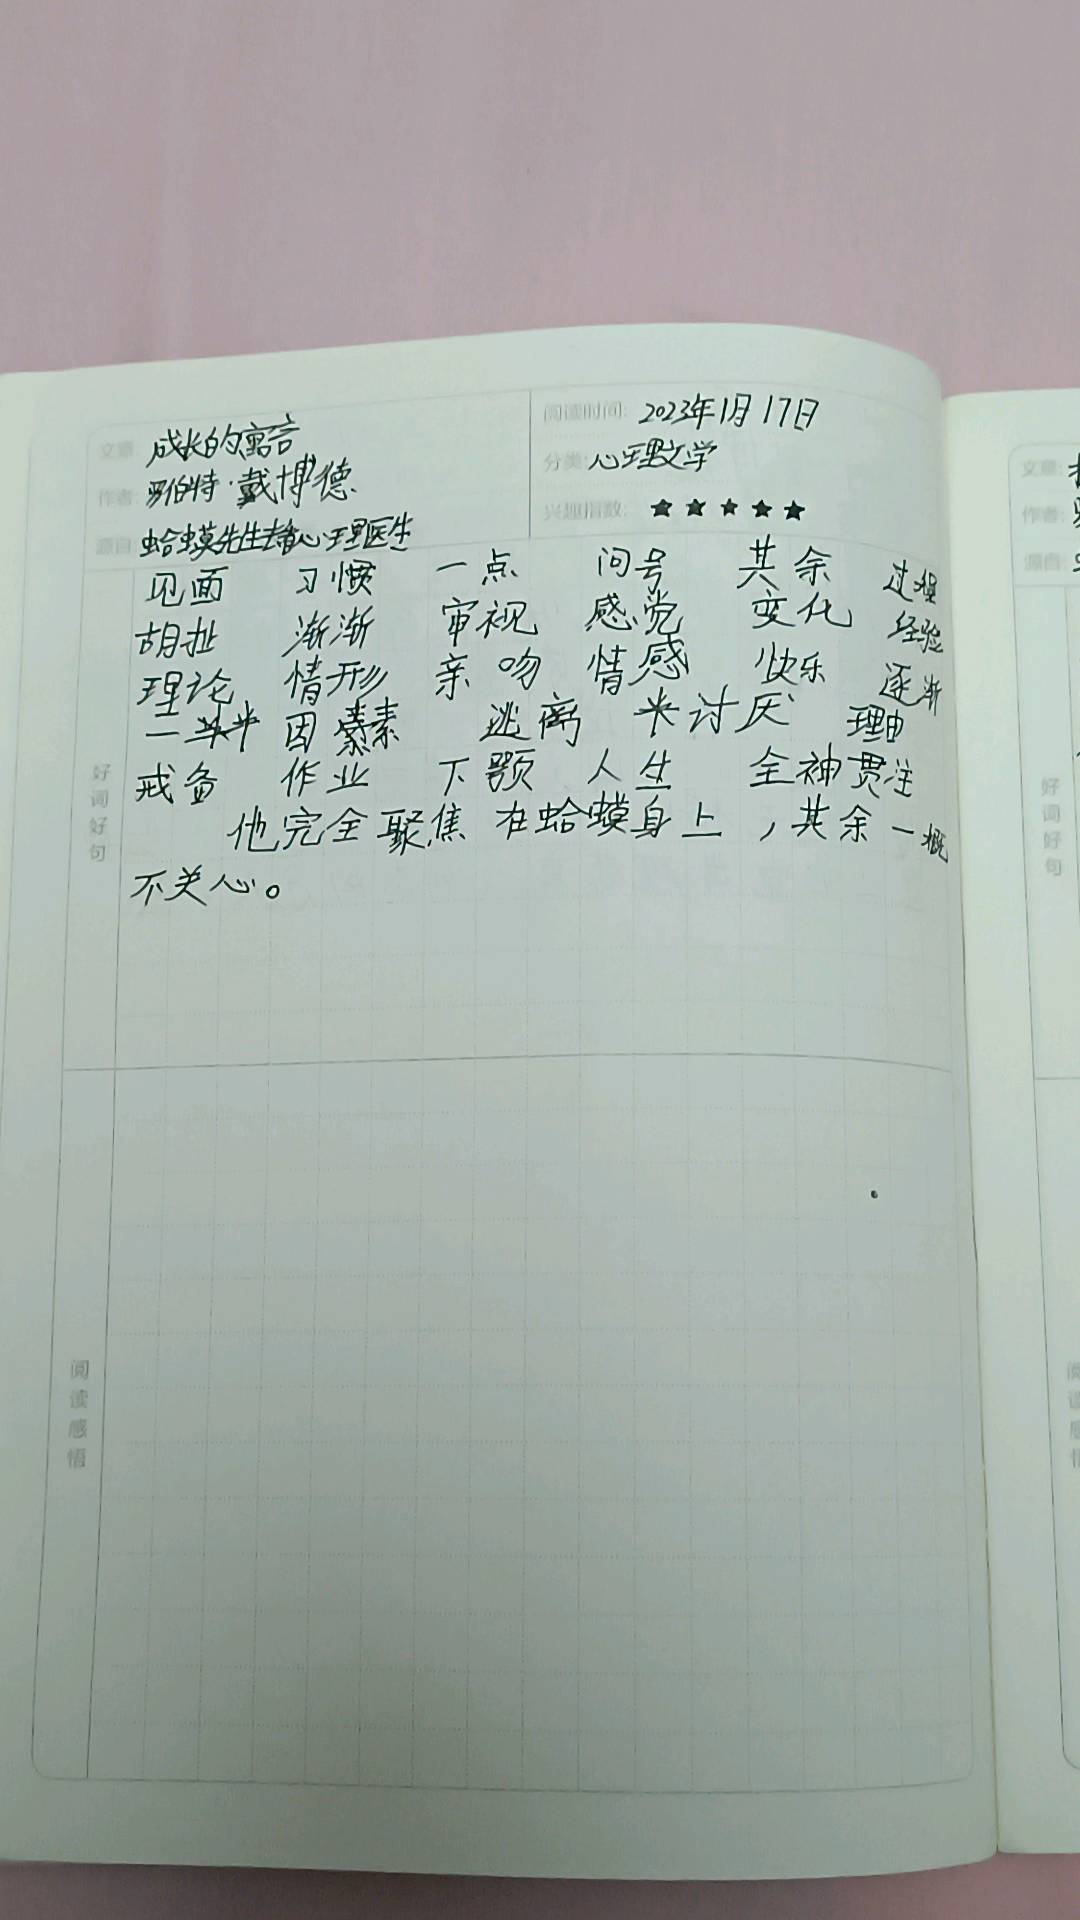 文章: 成长的寓言
作者: 罗伯特·戴博德
源自: 蛤蟆先生去看心理医生
阅读时间: 2023年1月17日
分类: 心理文学
兴趣指数: ★★★★★
见面 习惯 一点 问号 其余 过程
胡扯 渐渐 审视 感觉 变化 经验
理论 情形 亲吻 情感 快乐 逐渐
一 因 素 逃离 讨厌 理由
戒备 作业 下颚 人生 全神贯注
他完全聚焦在蛤蟆身上，其余一概
不关心。
好词好句
阅读感悟
文章:
作者:
源自:
好词好句